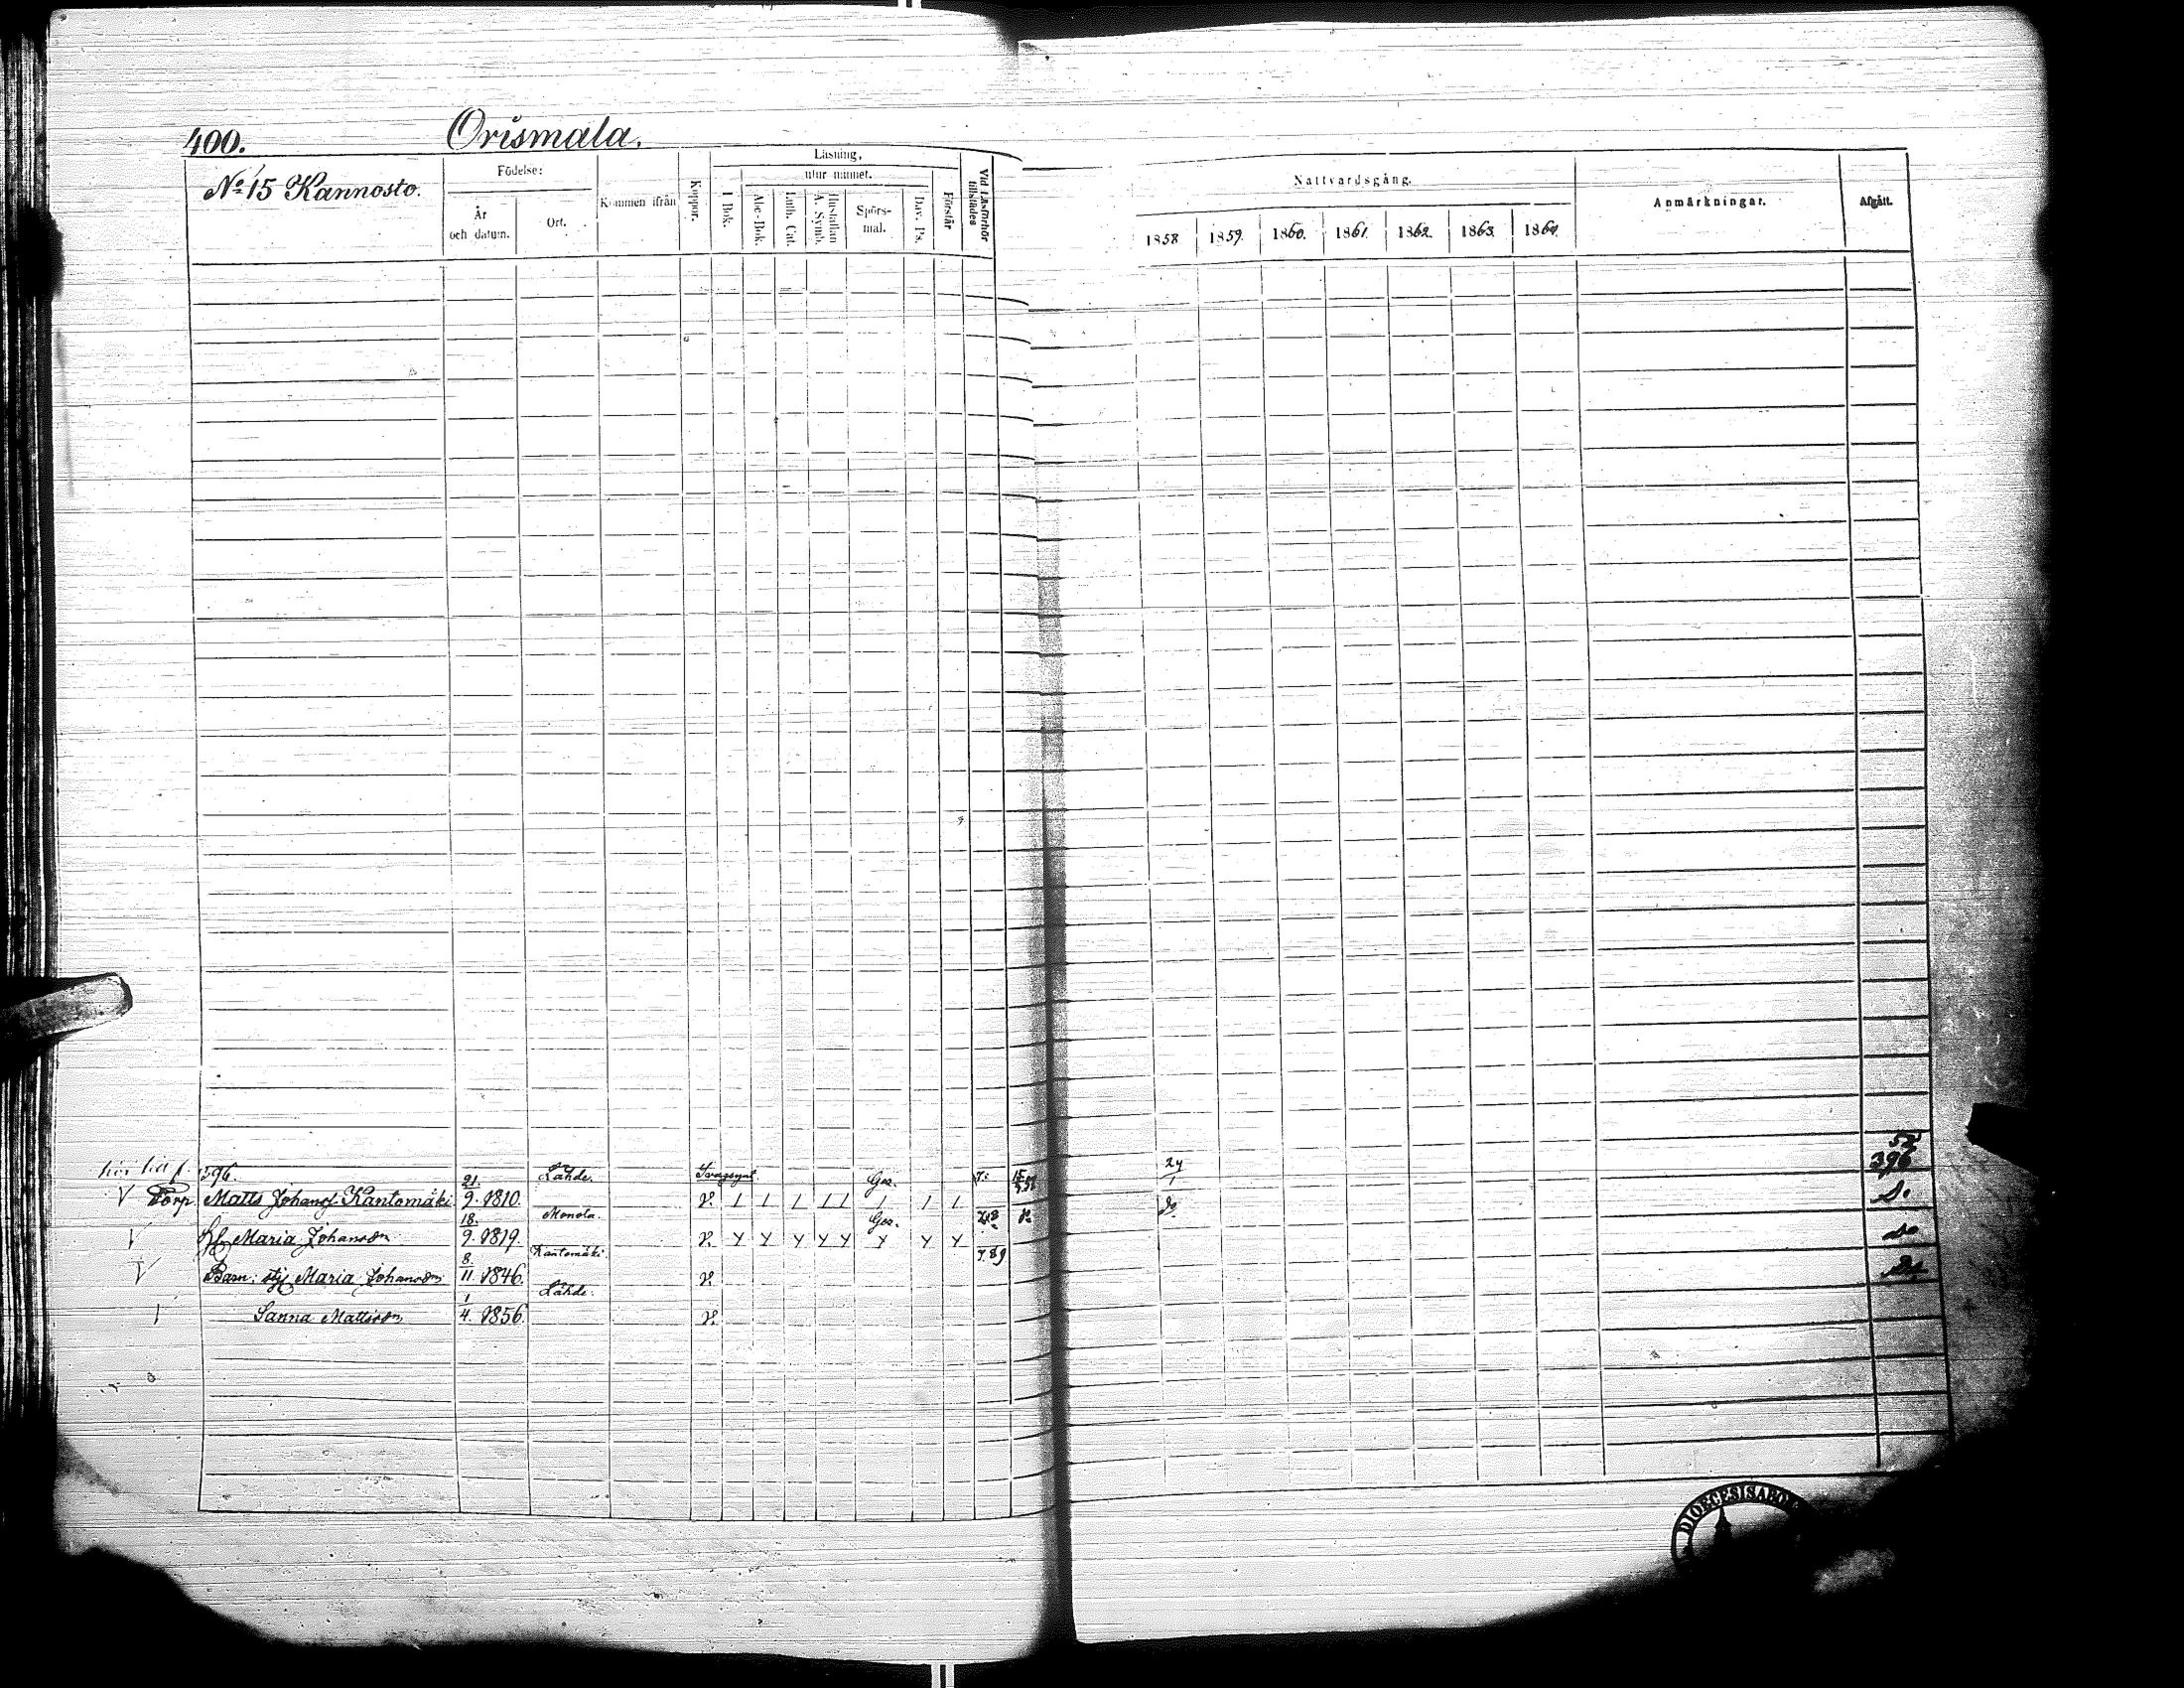 400. Orismala.
No 15 Kannosto.
Födelse:
År
och datum.
Ort.
Kommen ifrån
Koppor.
Läsning,
utur minnet.
I Bok.
Abc-Bok.
Luth. Cat.
Hustaflan
A. Symb.
Spörs-
mal.
Dav. Ps.
Förstår
Vid Läsförhör
tillstädes
Nattvardsgång.
1858 1859. 1860. 1861. 1862. 1863. 1864.
Anmärkningar.
Afgått.
396.
Torp Matts Johans Kantomäki 21. 9. 1810. Lähde. Svagsynt Ger. 24 1 396
Maria Johansdr 18. 9. 1819. Monola. Ger. Do
Barn: Maria Johansdr 8. 11. 1846. Kantomäki
Sanna Mattsdr 1 4. 1856. Lähde.
DIOECESIS ABO